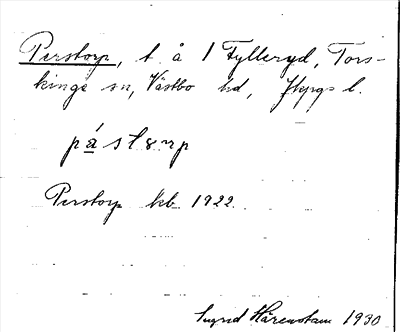 Perstorp, t. å 1 Fylleryd, Tors-
kinge sn, Västbo hd, Jkpgs l.
Perstorp kb 1922.
Ingrid Härenstam 1930